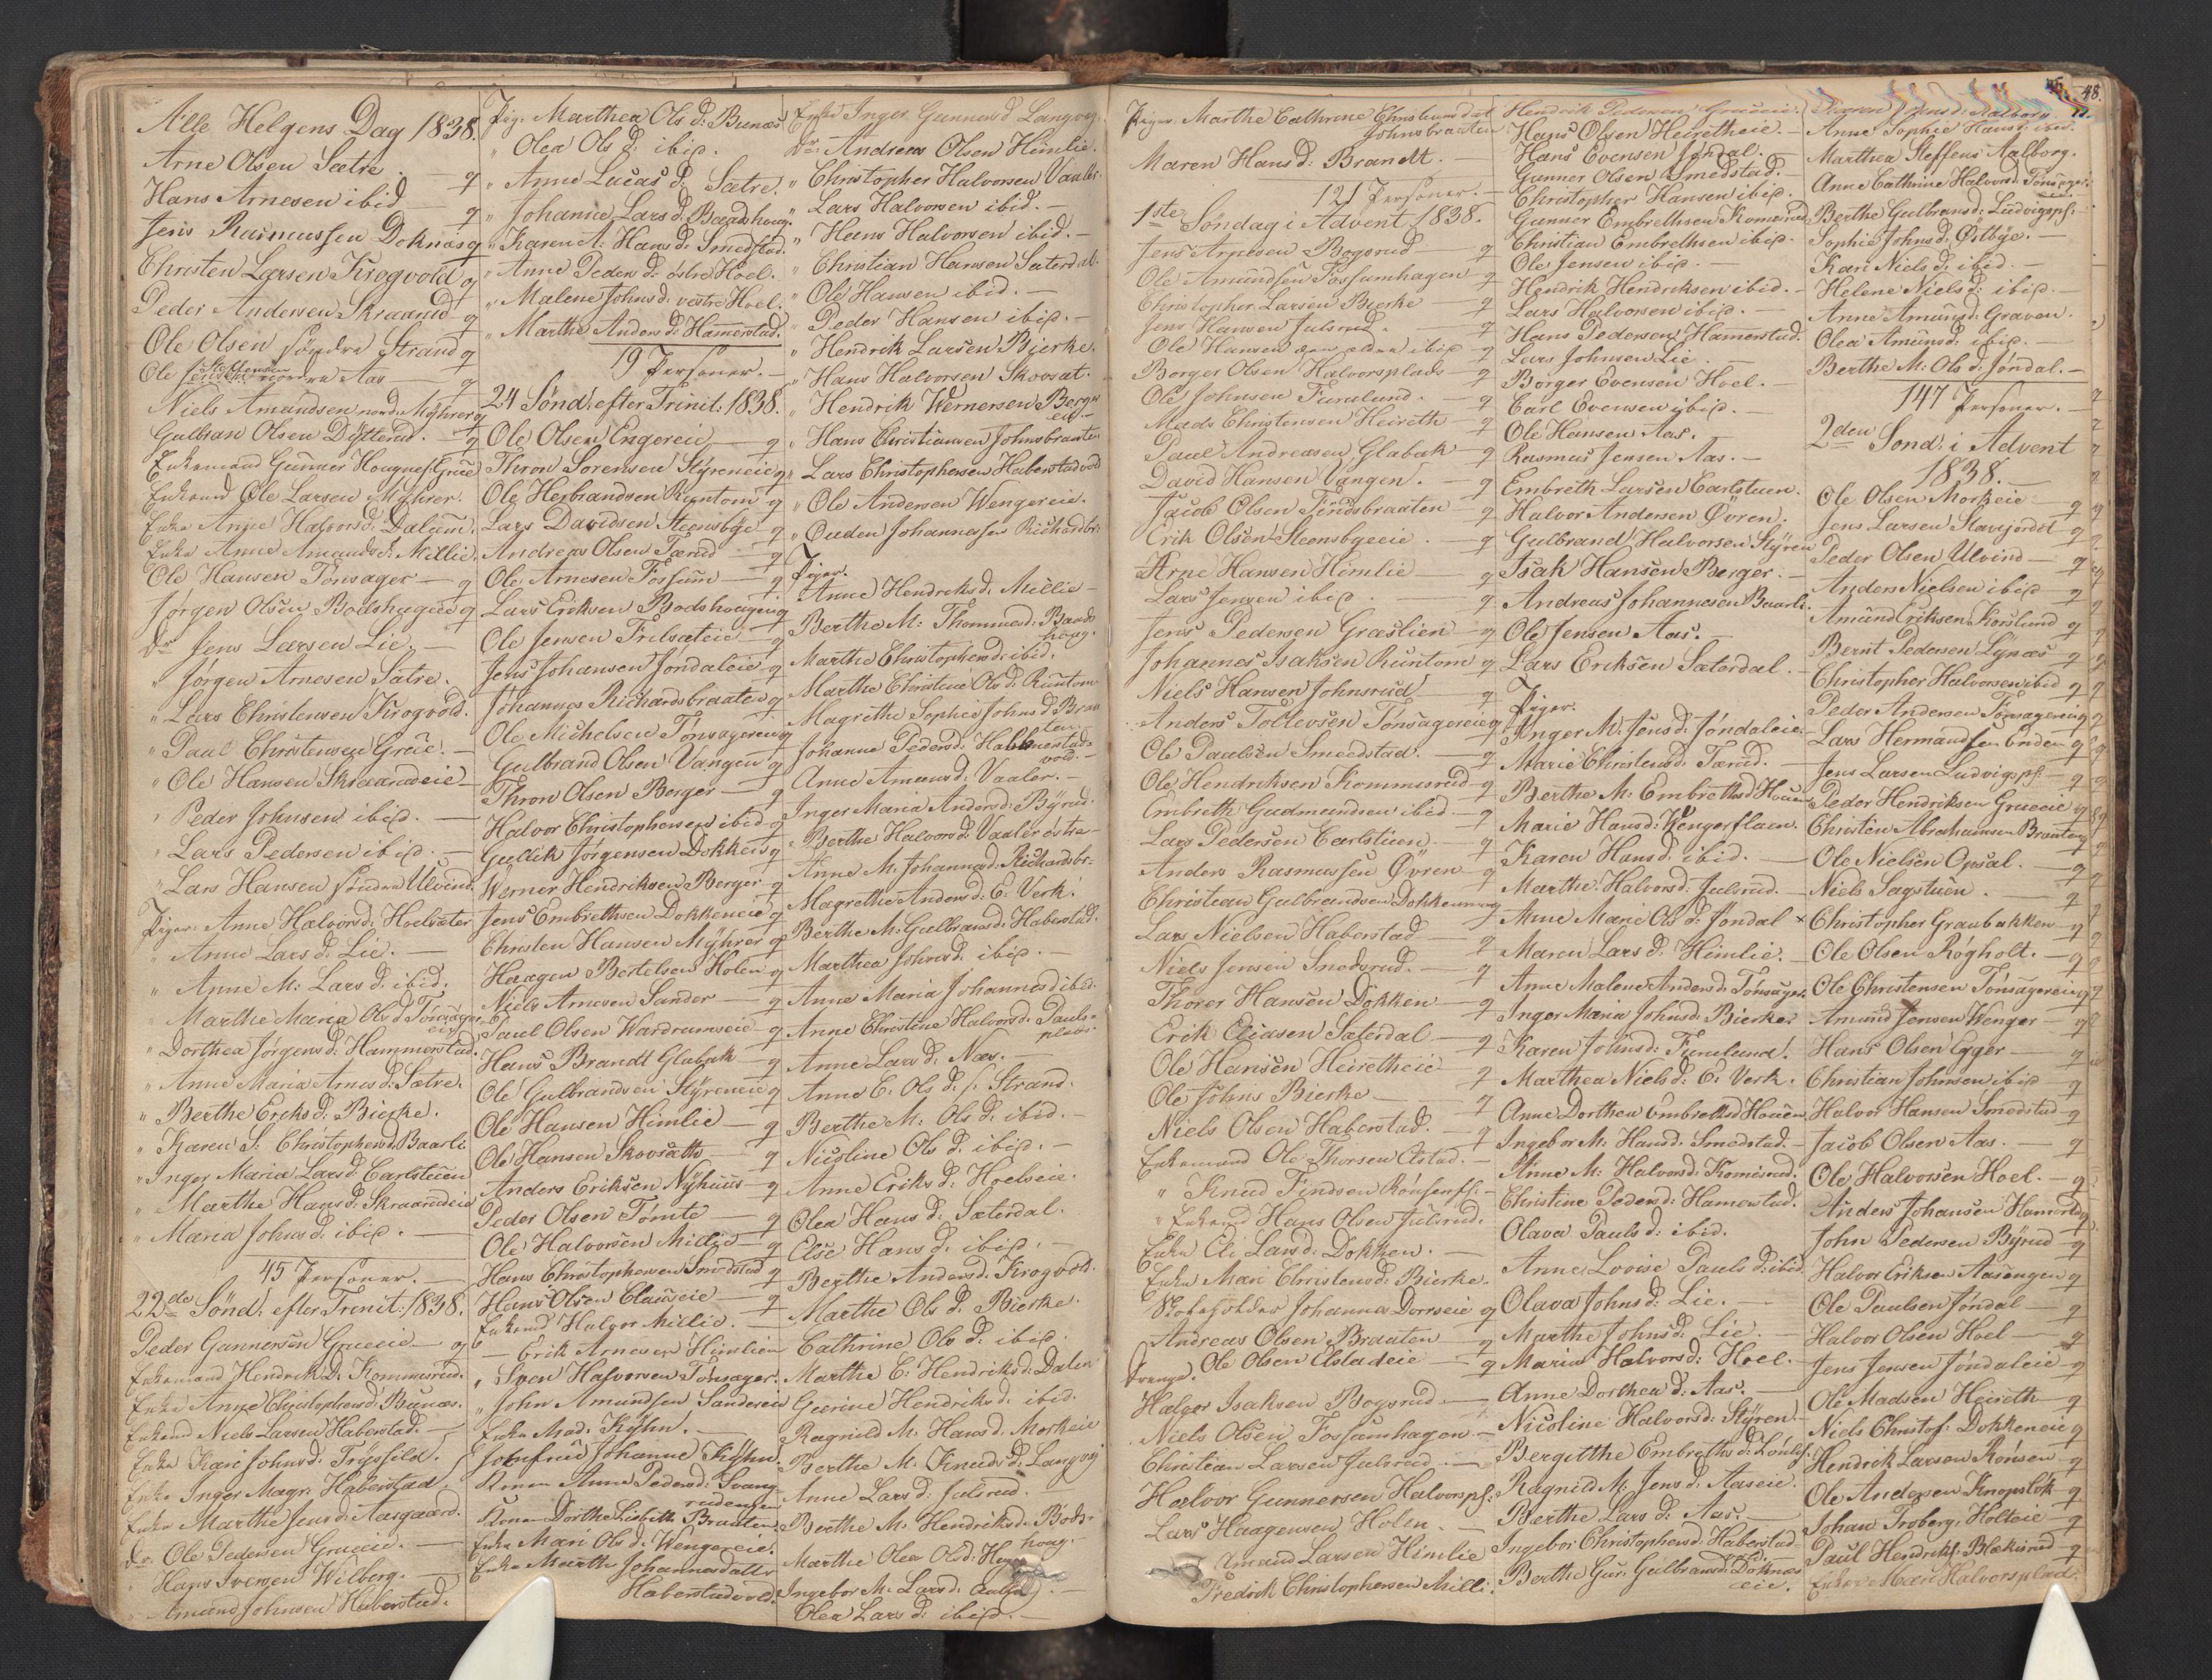 Alle Helgens Dag 1838.
Arne Olsen Sætre q
Hans Arnesen ibid q
Jens Rasmussen Doknæs q
Christen Larsen Krogvold q
Peder Andersen Skraarud q
Ole Olsen søndre Strand q
Ole Steffensen nordre Aas q
Niels Amundsen nord: Myhrer q
Gulbran Olsen Dytterud. q
Enkemand Gunner Hougnes Grue
Enkemd Ole Larsen Myhrer.
Enke Anne Halvorsd: Dalum.
Enke Anne Amunds d: Millie.
Ole Hansen Tønsager q
Jørgen Olsen Bødshagen q
Dr. Jens Larsen Lie. —
" Jørgen Arnesen Sætre.
" Lars Christensen Krogvold.
" Paul Christensen Grue. —
" Ole Hansen Skraarudeie —
" Peder Johnsen ibid. —
" Lars Pedersen ibid. —
" Lars Hansen søndre Ulvind.
Piger. Anne Halvorsd. Hoelsæter
" Anne Lars d. Lie. —
" Anne M. Lars d. ibid.
" Marthe Maria Ols d. Tønsager
eie
" Dorthea Jørgensd. Hammerstad.
" Anne Maria Arnes d. Sætre.
" Berthe Eriks d: Bierke.
" Karen S. Christophersd. Baarli
" Inger Maria Lars d: Carlstuen
" Marthe Hans d. Skraarudeie
" Maria Johns d. ibid. —
45 Personer. —
22de Sønd: efter Trinit: 1838.
Peder Gunnersen Grueeie q
Enkemand Hendrik D. Kommisrud.
Enke Anne Christophersd Bunæs.
Enkemd Niels Larsen Haberstad.
Enke Kari Johns d. Trøsfild.
Enke Inger Magr. Haberstad.
Enke Marthe Jens d. Aasgaard.
Dr. Ole Pedersen Grueeie. —
" Hans Iversen Wilberg. —
" Amund Johnsen Haberstad.
Pig. Marthea Ols d: Bunæs
" Olea Ols d: ibid.
" Anne Lucas d. Sætre.
" Johanne Lars d. Baadshoug.
" Karen A. Hans d. Smedstad.
" Anne Peders d: østre Hoel.
" Malene Johns d. vestre Hoel.
" Marthe Anders d: Hamerstad.
19 Personer. —
24 Sønd: efter Trinit: 1838.
Ole Olsen Engereie q
Thron Sorensen Styreneie q
Ole Herbrandsen Runtom q
Lars Davidsen Steensbye q
Andreas Olsen Tærud q
Ole Arnesen Fossum q
Lars Eriksen Bødshougen q
Ole Jensen Trilsæteie q
Jens Johansen Jøndaleie q
Johannes Richardsbraaten q
Ole Michelsen Tønsagereie q
Gulbrand Olsen Vangen q
Thron Olsen Berger q
Halvor Christophersen ibid q
Gullik Jørgensen Dokken q
Werner Hendriksen Berger q
Jens Embrethsen Dokkeneie q
Christen Hansen Myhrer q
Haagen Bertelsen Holen q
Niels Arnesen Sander q
Paul Olsen Wardrumseie q
Hans Brandt Glabak q
Ole Gulbrandsen Styreneie q
Ole Hansen Himlie q
Ole Hansen Skovsath q
Anders Eriksen Nyhuus q
Peder Olsen Tomte q
Ole Halvorsen Millie q
Hans Christophersen Smedstad q
Hans Olsen Clauseie q
Enkemd Halvor Millie. —
— Erik Arnesen Himlien
" Sven Halvorsen Tønsager.
" John Amundsen Sandereie
Enke Mad. Kyhn. —
Jomfrue Johanne Kyhn.
Konen Anne Pedersd. Svang-
rudengen
Konen Dorthe Lisbeth Braaten.
Enke Mari Ols d. Wengereie.
Enke Marthe Johannesdatter
Haberstadvold.
Enke Inger Gunnersd Langvig.
Dr. Andreas Olsen Himlie.
" Christopher Halvorsen Vaaler.
" Lars Halvorsen ibid. —
" Hans Halvorsen ibid. —
" Christian Hansen Sæterdal.
" Ole Hansen ibid. —
" Peder Hansen ibid. —
" Hendrik Larsen Bierke.
" Hans Halvorsen Skovsat.
" Hendrik Wernersen Berger
eie. —
" Hans Christiansen Johnsbraaten
" Lars Christophersen Haberstadvold
" Ole Andersen Wengereie.
" Ouden Johannesen Richardsbr:
Piger.
Anne Hendriksd. Millie —
Berthe M. Thommesd. Baads
houg.
Marthe Christophersd: ibid.
Marthe Christine Ols d. Runtom
Magrethe Sophie Johns d Braa
ten.
Johanne Pedersd. Habberstad-
vold. —
Anne Amunsd. Vaaler. —
Inger Maria Andersd: Byrud.
Berthe Halvorsd. Vaaler østre —
Anne M. Johannesd. Richardsbr:
Magrethe Andersd. E. Verk.
Berthe M. Gulbransd. Haberstad.
Marthea Johnsd. ibid. —
Anne Maria Johannesd ibid.
Anne Christine Halvorsd. Pauls-
plads
Anne Lars d: Næs. —
Anne E. Ols d. s. Strand.
Berthe M. Ols d. ibid. —
Nicoline Ols d. ibid. —
Anne Eriks d. Hoelseie.
Olea Hans d. Sæterdal.
Else Hans d. ibid. —
Berthe Andersd. Krogvold.
Marthe Ols d. Bierke
Cathrine Ols d. ibid.
Marthe E. Hendriksd. Dalen
Gurine Hendriksd. ibid.
Ragnild M. Hans d. Morkeie
Berthe M. Knuds d. Langvig
Anne Lars d. Julsrud. —
Berthe M. Hendriksd. Bøds-
houg.
Marthe Olea Olsd.
Ingebor M. Larsd.
Olea Lars d: ibid. —
Piger. Marthe Cathrene Christiansdat
Johnsbraaten
Maren Hans d: Brandt. —
121 Personer. —
1ste Søndag i Advent 1838.
Jens Arnesen Bogsrud q
Ole Amundsen Fossumhagen q
Christopher Larsen Bierke q
Jens Hansen Julsrud. q
Ole Hansen den ældre ibid q
Borger Olsen Halvorsplads q
Ole Johnsen Funelund. q
Mads Christensen Heireth q
Paul Andreasen Glabak q
David Hansen Vangen. q
Jacob Olsen Findsbraaten q
Erik Olsen Steensbyeeie q
Arne Hansen Himlie q
Lars Jensen ibid q
Jens Pedersen Græslien q
Johannes Isaksen Runtom q
Niels Hansen Johnsrud q
Anders Tollevsen Tønsagereie q
Ole Paulsen Smedstad. q
Ole Hendriksen Kommisrud q
Embreth Gudmundsen ibid. q
Lars Pedersen Carlstuen q
Anders Rasmussen Øvren q
Christian Gulbrandsen Dokken q
Lars Nielsen Haberstad q
Niels Jensen Snedsrud. q
Thorer Hansen Dokken q
Erik Eliasen Sæterdal q
Ole Hansen Heiretheie q
Ole Johns Bierke q
Niels Olsen Haberstad. q
Enkemand Ole Thorsen Elstad. —
" Knud Findsen Rønsenss. —
" Enkemd Hans Olsen Julsrud.
Enke Eli Larsd. Dokken. —
Enke Mari Christensd. Bierke.
Skoleholder Johannes Dorrseie q
Andreas Olsen Braaten q
Svangd. Ole Olsen Elstadeie q
Halvor Isaksen Bogsrud. —
Niels Olsen Fossumhagen —
Christian Larsen Julsrud. —
Halvor Gunnersen Halvorspl:
Lars Haagensen Holen. —
Amund Larsen Himlie
Fredrik Christophersen Milli.
Hendrik Pedersen Grueeie.
Hans Olsen Heiretheie. —
Hans Evensen Jøndal. —
Gunner Olsen Smedstad. —
Christopher Hansen ibid. —
Gunner Embrethsen Komisrud
Christian Embrethsen ibid.
Ole Jensen ibid. —
Hendrik Hendriksen ibid. —
Lars Halvorsen ibid. —
Hans Pedersen Hamerstad.
Lars Johnsen Lie. —
Borger Evensen Hoel. —
Carl Evensen ibid. —
Ole Hansen Aas. —
Rasmus Jensen Aas. —
Embreth Larsen Carlstuen.
Halvor Andersen Øvren.
Gulbrand Halvorsen Styren
Isak Hansen Berger. —
Andreas Johannesen Baarli.
Ole Jensen Aas.
Lars Eriksen Sæterdal. —
Piger.
Inger M. Jensd. Jøndaleie.
Marie Christensd. Tærud. —
Berthe M. Embrethsd Houen
Marie Hansd. Wengerflaen.
Karen Hansd. ibid. —
Marthe Halvorsd. Julsrud. —
Anne Marie Ols d. Jøndal ×
Maren Lars d. Himlie. —
Anne Malene Andersd. Tønsager.
Inger Maria Johnsd. Bierke.
Karen Johnsd. Funelund.
Marthea Niels d: E. Verk.
Anne Dorthea Embrethsd Houen
Ingebor M. Hansd. Smedstad. —
Anne M: Halvorsd. Komisrud.
Christine Pedersd. Hamerstad.
Olava Pauls d: ibid.
Anne Lovise Pauls d: ibid.
Olava Johns d: Lie. —
Marthe Johns d. Lie. —
Maria Halvors d: Hoel. —
Anne Dorthea d. Aas. —
Nicoline Halvorsd: Styren —
Bergitthe Embreths d.
Ragnild M. Jens d. Aaseie.
Berthe Lars d. Aas. —
Ingebor Christophersd. Haberstad
Berthe Gur: Gulbransd. Doknæs
eie.
Maren Jensd. Aalborg
Anne Sophie Hans d. ibid.
Marthea Steffens Aalborg.
Anne Cathrine Halvorsd. Tønsager-
eie.
Berthe Gulbransd: Ludvigspl:
Sophie Johns d. Østbye. —
Kari Niels d. ibid. —
Helene Niels d: ibid. —
Anne Amunsd: Graven.
Olea Amunsd: ibid. —
Berthe M. Ols d. Jøndal. —
147 Personer. —
2den Sønd: i Advent
1838. —
Ole Olsen Morkeie q
Jens Larsen Slavjordet q
Peder Olsen Ulvind q
Anders Nielsen ibid q
Amund Eriksen Korslund q
Bernt Pedersen Lynæs q
Christopher Halvorsen ibid q
Peder Andersen Tønsagereie q
Lars Hermandsen Enden q
Jens Larsen Ludvigspl: q
Peder Hendriksen Grueeie q
Christen Abrahamsen Braaten q
Ole Nielsen Opsal. q
Niels Sagstuen. q
Christopher Graubakken q
Ole Olsen Røgholt. q
Ole Christensen Tønsagereie q
Amund Jensen Wenger q
Hans Olsen Egger q
Christian Johnsen ibid q
Halvor Hansen Smedstad q
Jacob Olsen Aas. q
Ole Halvorsen Hoel. q
Anders Johansen Hamerstad q
John Pedersen Byrud q
Halvor Eriksen Aasengen q
Ole Paulsen Jøndal q
Halvor Olsen Hoel q
Jens Jensen Jøndaleie q
Ole Madsen Heireth q
Niels Christof: Dokkeneie q
Hendrik Larsen Rønsen q
Ole Andersen Knopslok q
Johan Troberg: Holteie q
Paul Hendriks: Blæksrud q
Enke Mari Halvorsplad.
48.